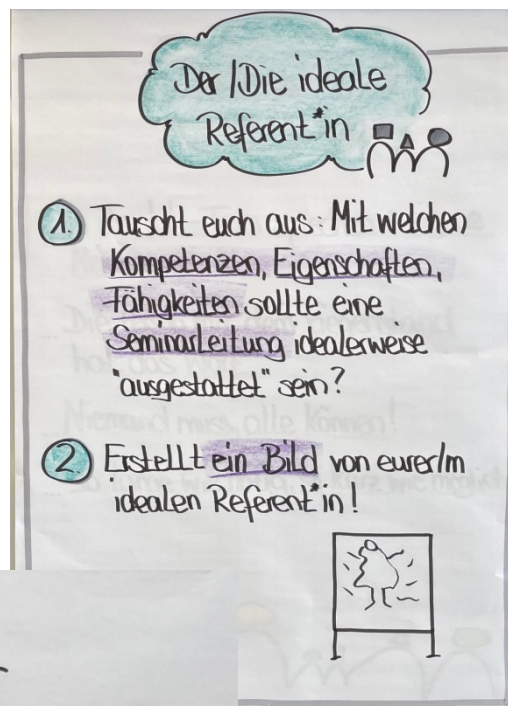 Der/Die ideale
Referent*in
1. Tauscht euch aus: Mit welchen
Kompetenzen, Eigenschaften,
Fähigkeiten sollte eine
Seminarleitung idealerweise
"ausgestattet" sein?
2. Erstellt ein Bild von eurer/m
idealen Referent*in!